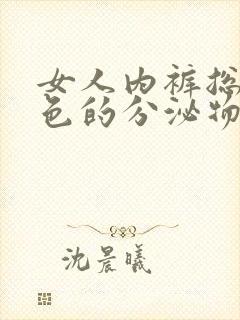 女人内裤总
色的分泌物
沈晨曦